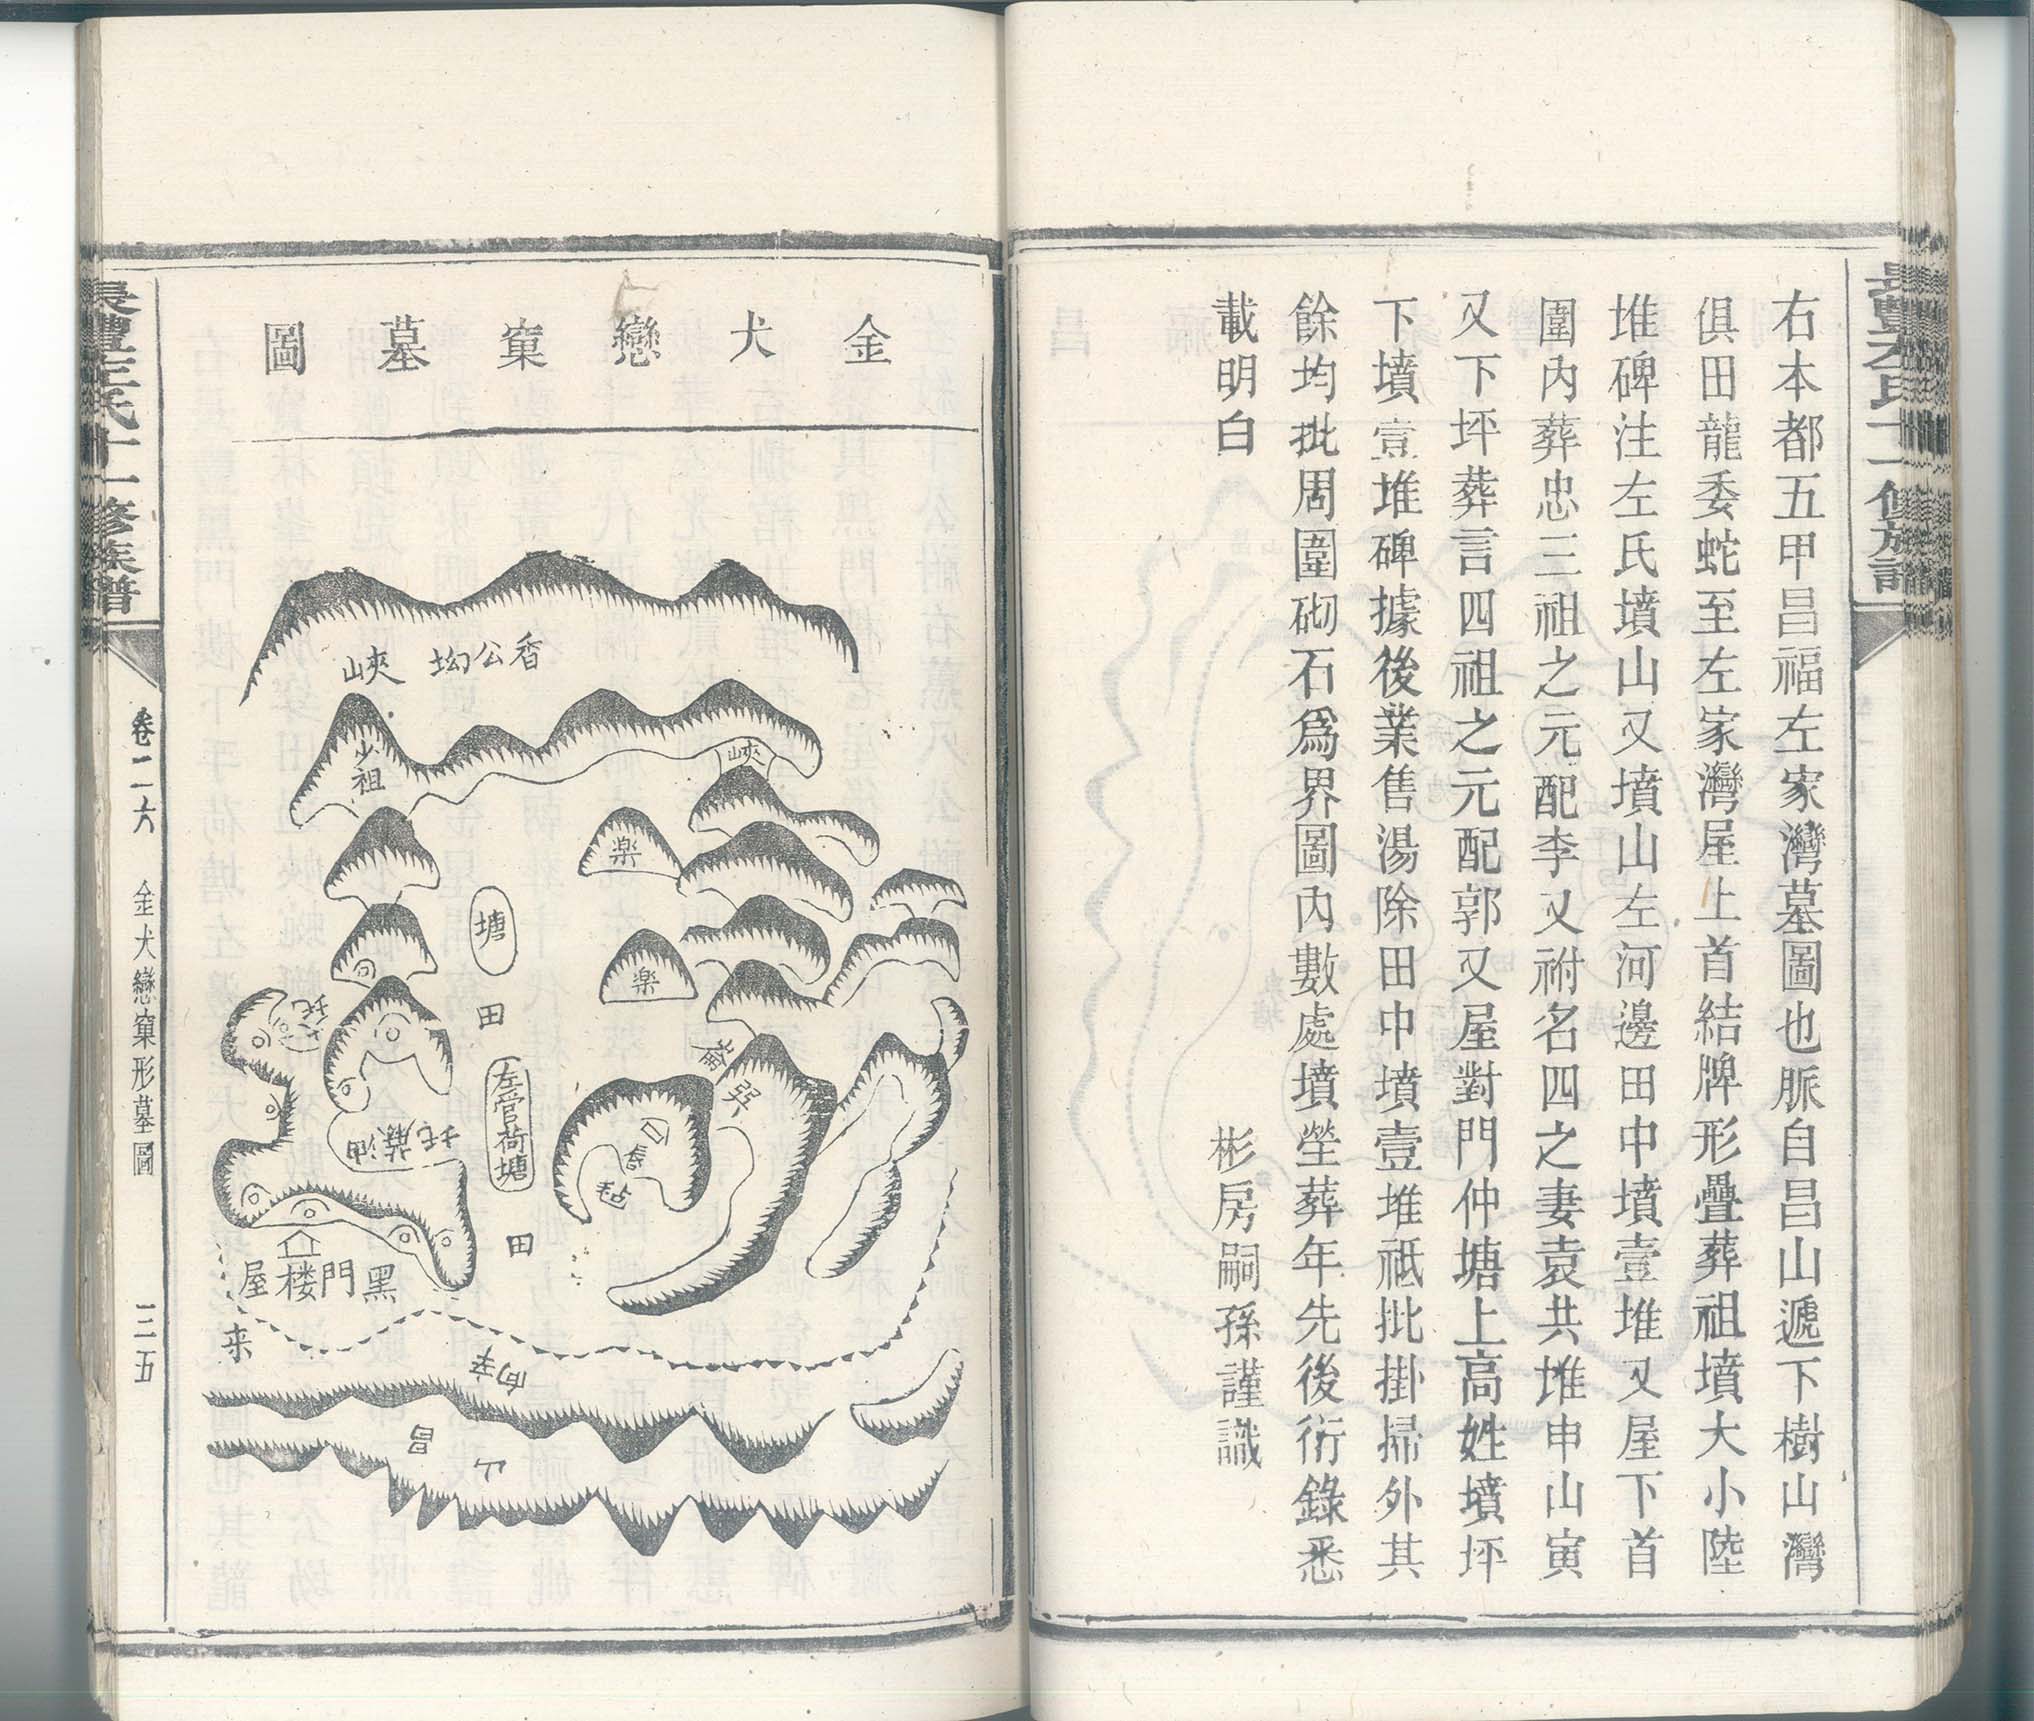 右本都五甲昌福左家灣墓圖也脈自昌山遞下樹山灣
俱田龍委蛇至左家灣屋上首結牌形疊葬祖墳大小陸
堆碑注左氏墳山又墳山左河邊田中墳壹堆又屋下首
圍內葬忠三祖之元配李又祔名四之妻袁共堆申山寅
又下坪葬言四祖之元配郭又屋對門仲塘上高姓墳坪
下墳壹堆碑據後業售湯除田中墳壹堆祇批掛掃外其
餘均批周圍砌石爲界圖內數處墳塋葬年先後衍錄悉
載明白
彬房嗣孫謹識
金犬戀窠墓圖
香公坳
峽
少祖
峽
塘
田
左管荷塘
田
黑門楼屋
来
昌
左氏十一修族譜
卷二六
金犬戀窠形墓圖
三五